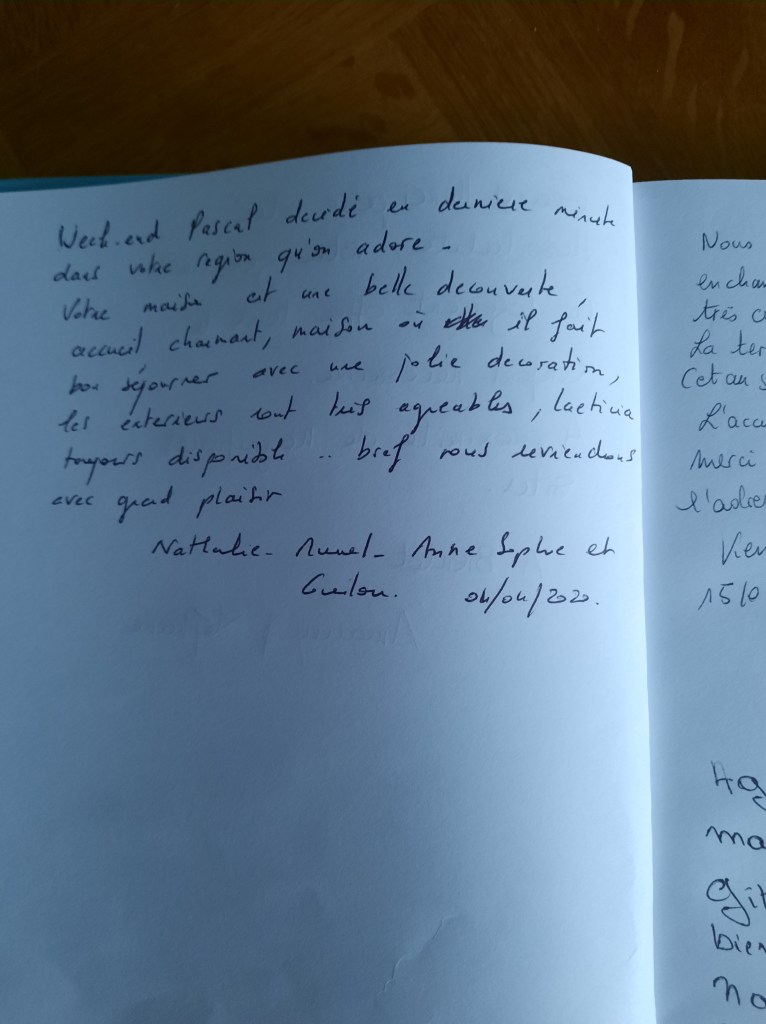 Week-end Pascal decidé en derniere minute
dans votre region qu'on adore -
Votre maison est une belle decouverte,
accueil charmant, maison où il fait
bon séjourner avec une jolie decoration,
les exterieurs sont très agreables, Laeticia
toujours disponible .. bref nous reviendrons
avec grand plaisir
Nathalie - - Anne Sophie et
04/04/2020.
Nous
très
La
Cet au
L'
merci
15/0